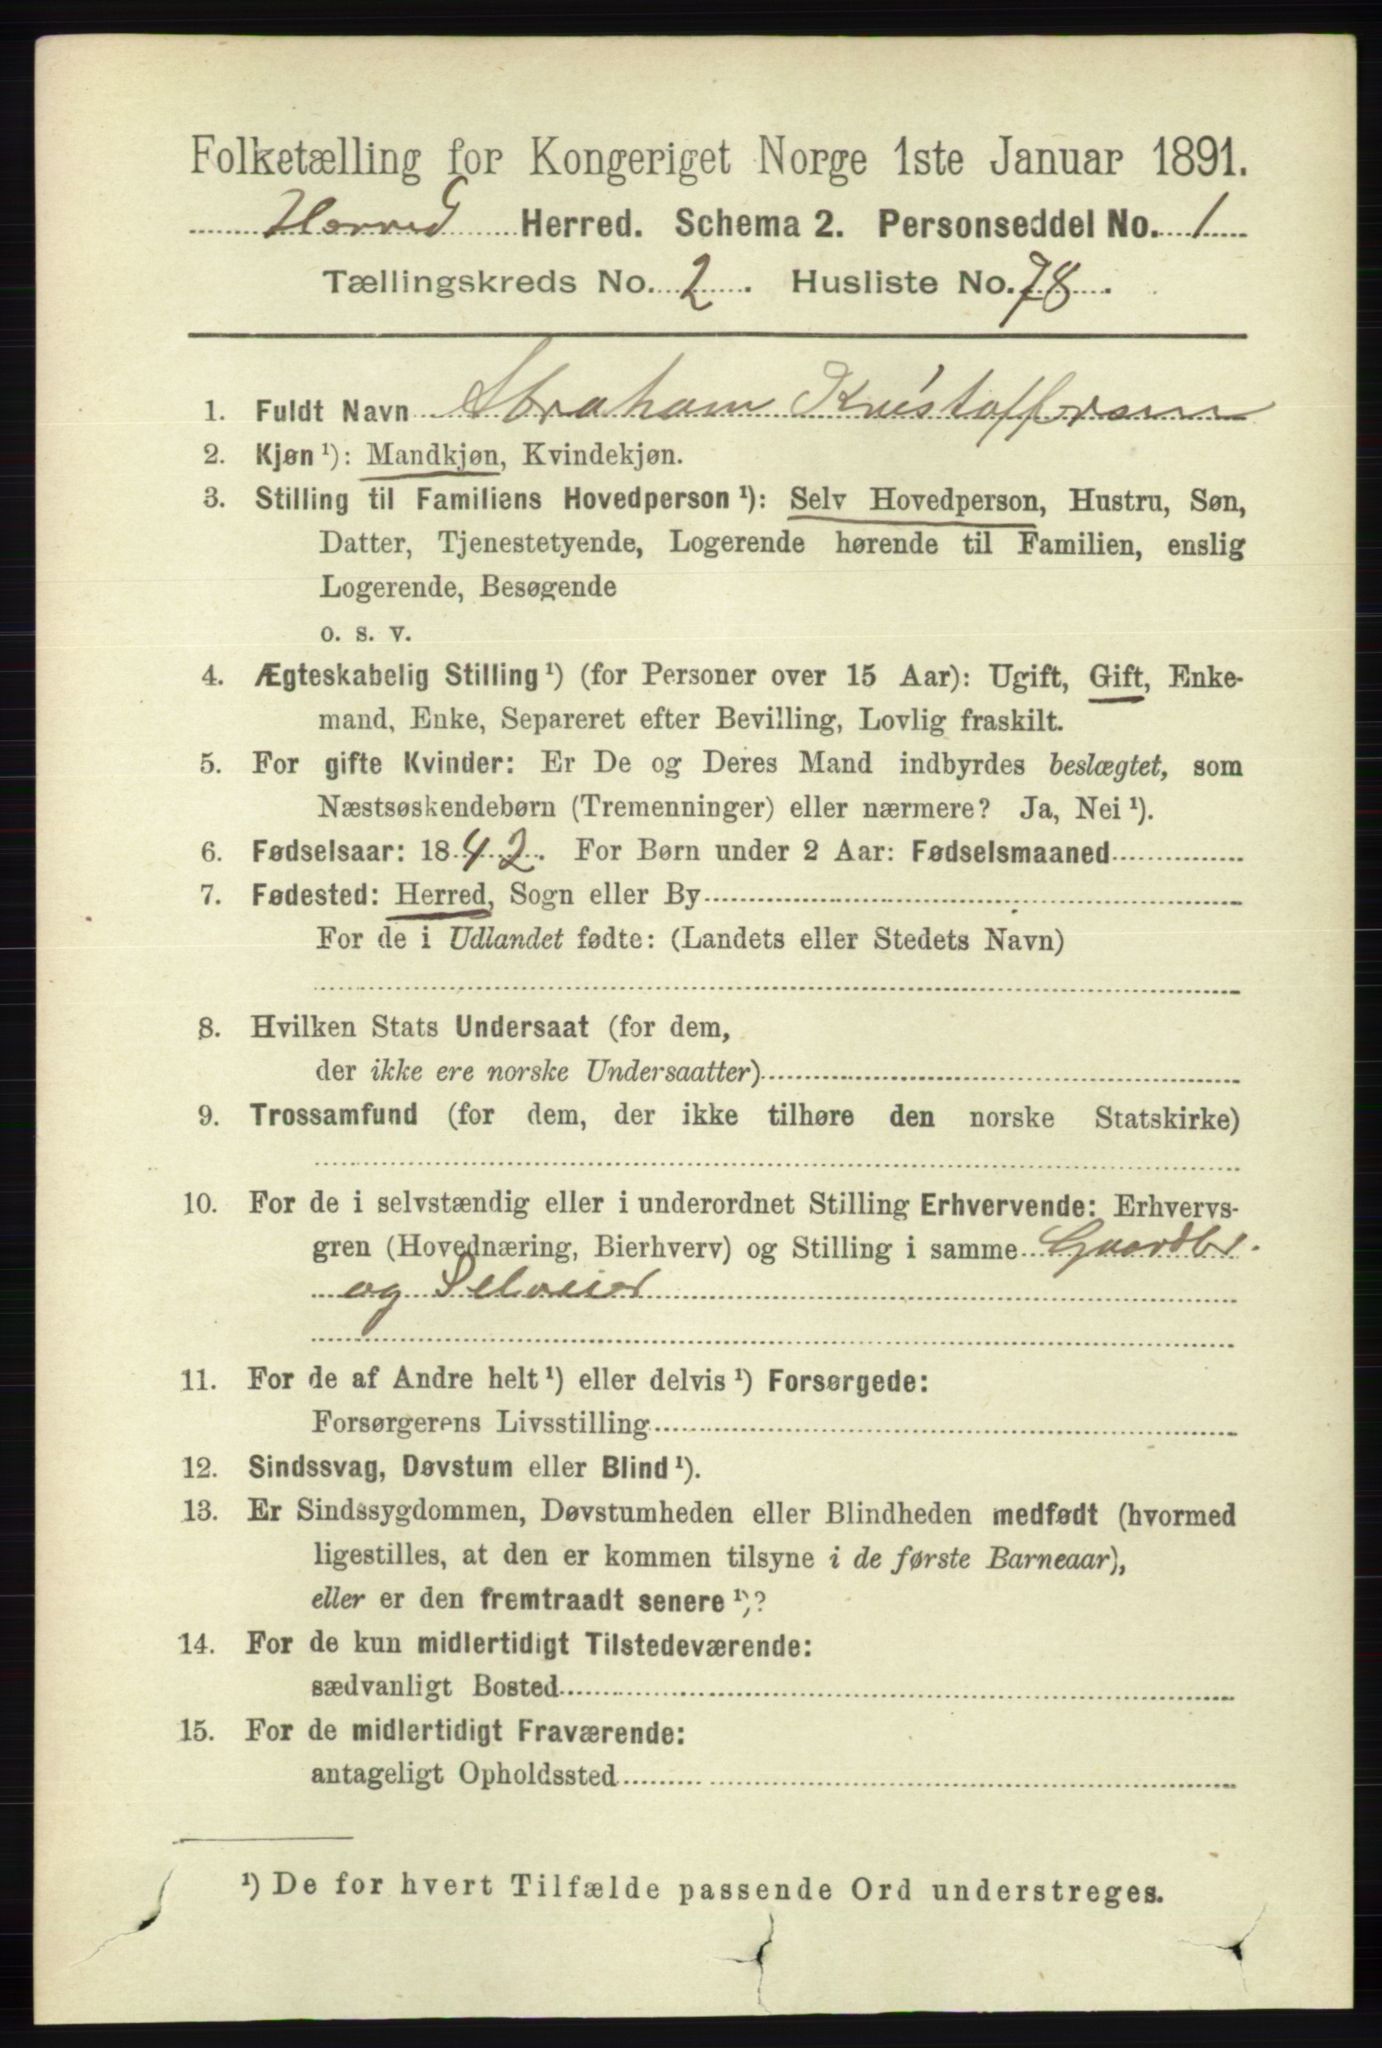 Folketælling for Kongeriget Norge 1ste Januar 1891.
Herred. Schema 2. Personseddel No. 1
Tællingskreds No. 2. Husliste No. 78.
1. Fuldt Navn Abraham Kristoffersen
2. Kjøn ¹): Mandkjøn, Kvindekjøn.
3. Stilling til Familiens Hovedperson ¹): Selv Hovedperson, Hustru, Søn,
Datter, Tjenestetyende, Logerende hørende til Familien, enslig
Logerende, Besøgende
o. s. v.
4. Ægteskabelig Stilling ¹) (for Personer over 15 Aar): Ugift, Gift, Enke-
mand, Enke, Separeret efter Bevilling, Lovlig fraskilt.
5. For gifte Kvinder: Er De og Deres Mand indbyrdes beslægtet, som
Næstsøskendebørn (Tremenninger) eller nærmere? Ja, Nei ¹).
6. Fødselsaar: 1842. For Børn under 2 Aar: Fødselsmaaned
7. Fødested: Herred, Sogn eller By
For de i Udlandet fødte: (Landets eller Stedets Navn)
8. Hvilken Stats Undersaat (for dem,
der ikke ere norske Undersaatter)
9. Trossamfund (for dem, der ikke tilhøre den norske Statskirke)
10. For de i selvstændig eller i underordnet Stilling Erhvervende: Erhvervs-
gren (Hovednæring, Bierhverv) og Stilling i samme Gaardbr.
og Selveier
11. For de af Andre helt ¹) eller delvis ¹) Forsørgede:
Forsørgerens Livsstilling
12. Sindssvag, Døvstum eller Blind ¹).
13. Er Sindssygdommen, Døvstumheden eller Blindheden medfødt (hvormed
ligestilles, at den er kommen tilsyne i de første Barneaar),
eller er den fremtraadt senere ¹)?
14. For de kun midlertidigt Tilstedeværende:
sædvanligt Bosted
15. For de midlertidigt Fraværende:
antageligt Opholdssted
¹) De for hvert Tilfælde passende Ord understreges.